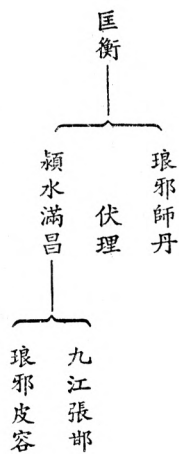 匡衡
琅邪師丹
伏理
潁水滿昌
九江張邯
琅邪皮容